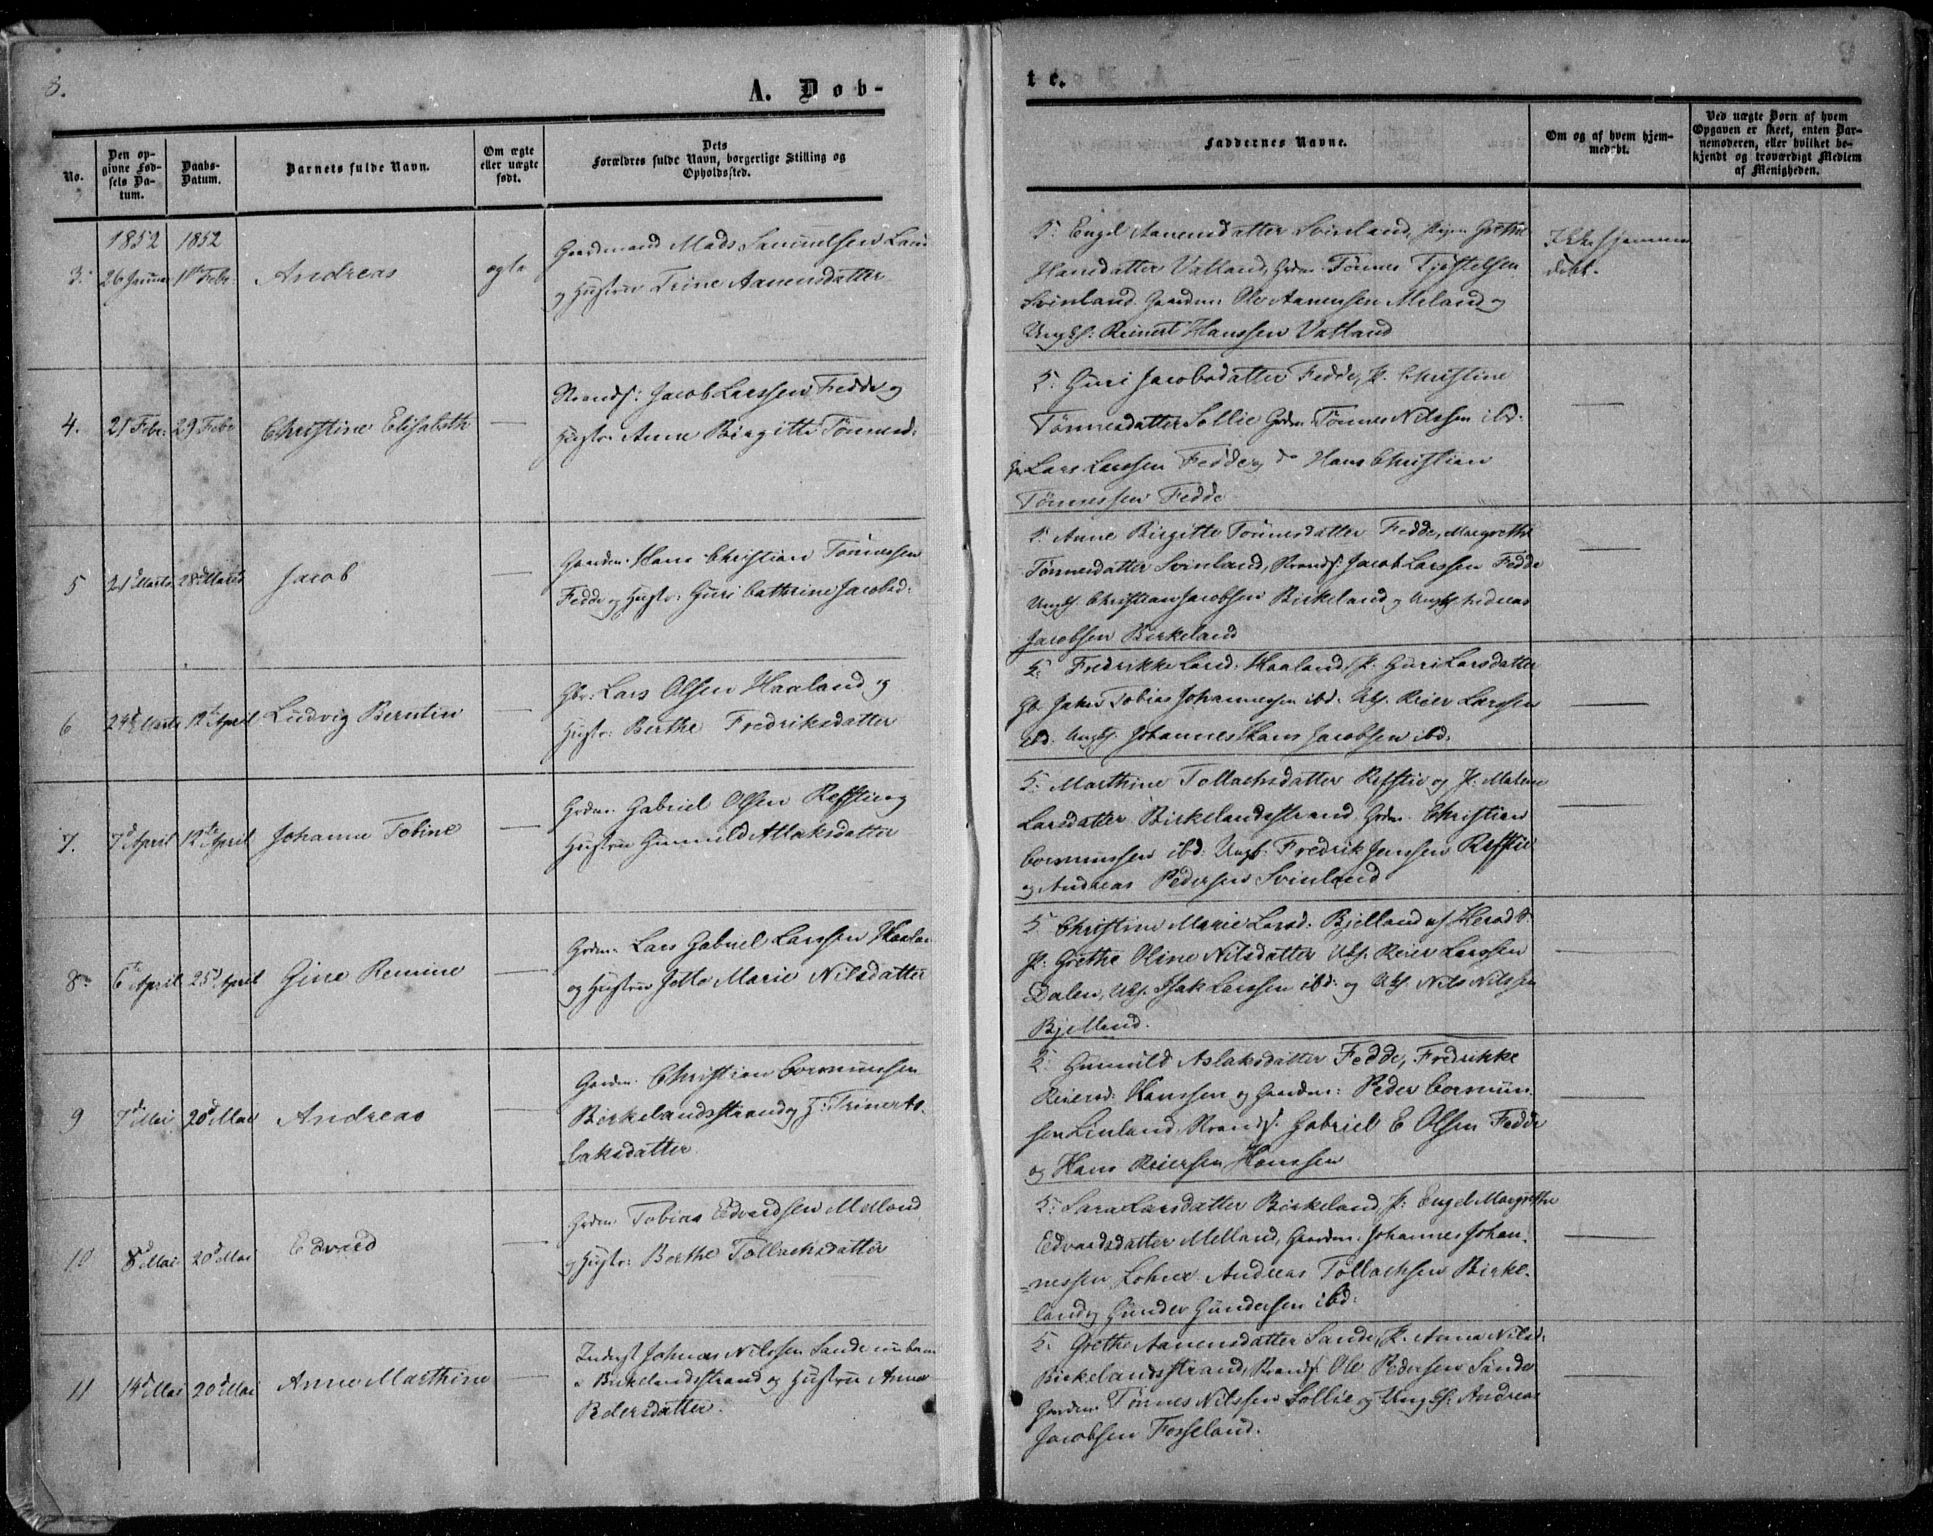 8.
A. Døb-
te.
No.
Den op-
givne Fød-
sels Da-
tum.
Daabs-
Datum.
Barnets fulde Navn.
Om ægte
eller uægte
født.
Dets
Forældres fulde Navn, borgerlige Stilling og
Opholdssted.
Faddernes Navne.
Om og af hvem hjem-
medøbt.
Ved uægte Børn af hvem
Opgaven er skeet, enten Bar-
nemoderen, eller hvilket be-
kjendt og troværdigt Medlem
af Menigheden.
1852 1852
3. 26 Januar 1ste Febr. Andreas ægte
Gaardmand Mads Samuelsen
og Hustru Trine Aanensdatter
Engel Aanensdatter Svinland, Pigen Grethe
Hansdatter Vatland, Grdm. Tønnes Tjøstelsen
Svinland. Gaardm: Ole Aanensen Meland og
Ungk: Reinert Hanssen Vatland
Ikke hjemme-
døbt.
4. 21 Febr. 29 Febr Christine Elisabeth —
Strands: Jacob Larssen Fedde og
Hustr: Anne Birgitte Tønnesd:
Guri Jacobsdatter Fedde, P. Christine
Tønnesdatter Sollie Grdm Tønnes Nilssen ibd.
Lars Larssen Fedde og do Hans Christian
Tønnessen Fedde
—
5 21d Marts 28d Marts Jacob —
Gaardm. Hans Christian Tønnessen
Fedde og Hustr: Guri Cathrine Jacobsd:
Anne Birgitte Tønnesdatter Fedde, Margrethe
Tønnesdatter Svinland, Strands. Jacob Larssen Fedde
Ungk Christian Jacobsen Birkeland og Ungk Andreas
Jacobsen Birkeland
—
6 24d Marts 12te April Ludvig Berntin —
Gbr: Lars Olsen Haaland og
Hustr: Berthe Fredriksdatter
Fredrikke Larsd. Haaland, P. Guri Larsdatter
Tobias Johannessen ibd. Uk. Reier Larssen
ibd. Ungk. Johannes Hans Jacobsen ibd.
—
7. 7d April 12te April Johanne Tobine —
Grdm. Gabriel Olsen Refstie og
Hustru Gunnild Atlaksdatter
Marthine Tollachsdatter Refstie og P. Malene
Larsdatter Birkelandsstrand. Grdm. Christian
Cormunssen ibd: Ungk. Fredrik Jenssen Refstie
og Andreas Pedersen Svinland
—
8. 6te April 25d April Gine Remine —
Grdm. Lars Gabriel Larssen
og Hustru Marie Nilsdatter
Christine Marie Larsd. Bjelland af Herad
P: Grethe Oline Nilsdatter Uk. Reier Larssen
Dalen, Uk. Isak Larssen ibd: og Uk Nils Nilssen
Bjelland.
—
9 7d Mai 20d Mai Andreas —
Gaardm. Christian Cormunssen
Birkelandsstrand og H: Trine As-
laksdatter
Gunnild Aslaksdatter Fedde, Fredrikke
Reiersd: Hanssen og Gaardm: Peder Cormun-
sen Linland, Strands. Gabriel E Olsen Fedde
og Hans Reiersen Hanssen
—
10 8d Mai 20d Mai Edvard —
Grdm. Tobias Edvardsen Melland
og Hustr: Berthe Tollachsdatter
Sara Larsdatter Birkeland, P: Engel Margrethe
Edvardsdatter Melland, Gaardm: Johannes Johan-
nessen Andreas Tollachsen Birke-
land og Gunder Gundersen ibd:
—
11 14d Mai 20d Mai Anne Marthine —
Inderst Johnas Nilssen Sande
Birkelandsstrand og Hustru Anne
Pedersdatter.
Grethe Aanensdatter Sande, P. Anna Nilsd:
Birkelandsstrand, Strands. Ole Pedersen Sande
Gaardm Tønnes Nilssen Sollie og Ungk: Andreas
Jacobsen Fosseland.